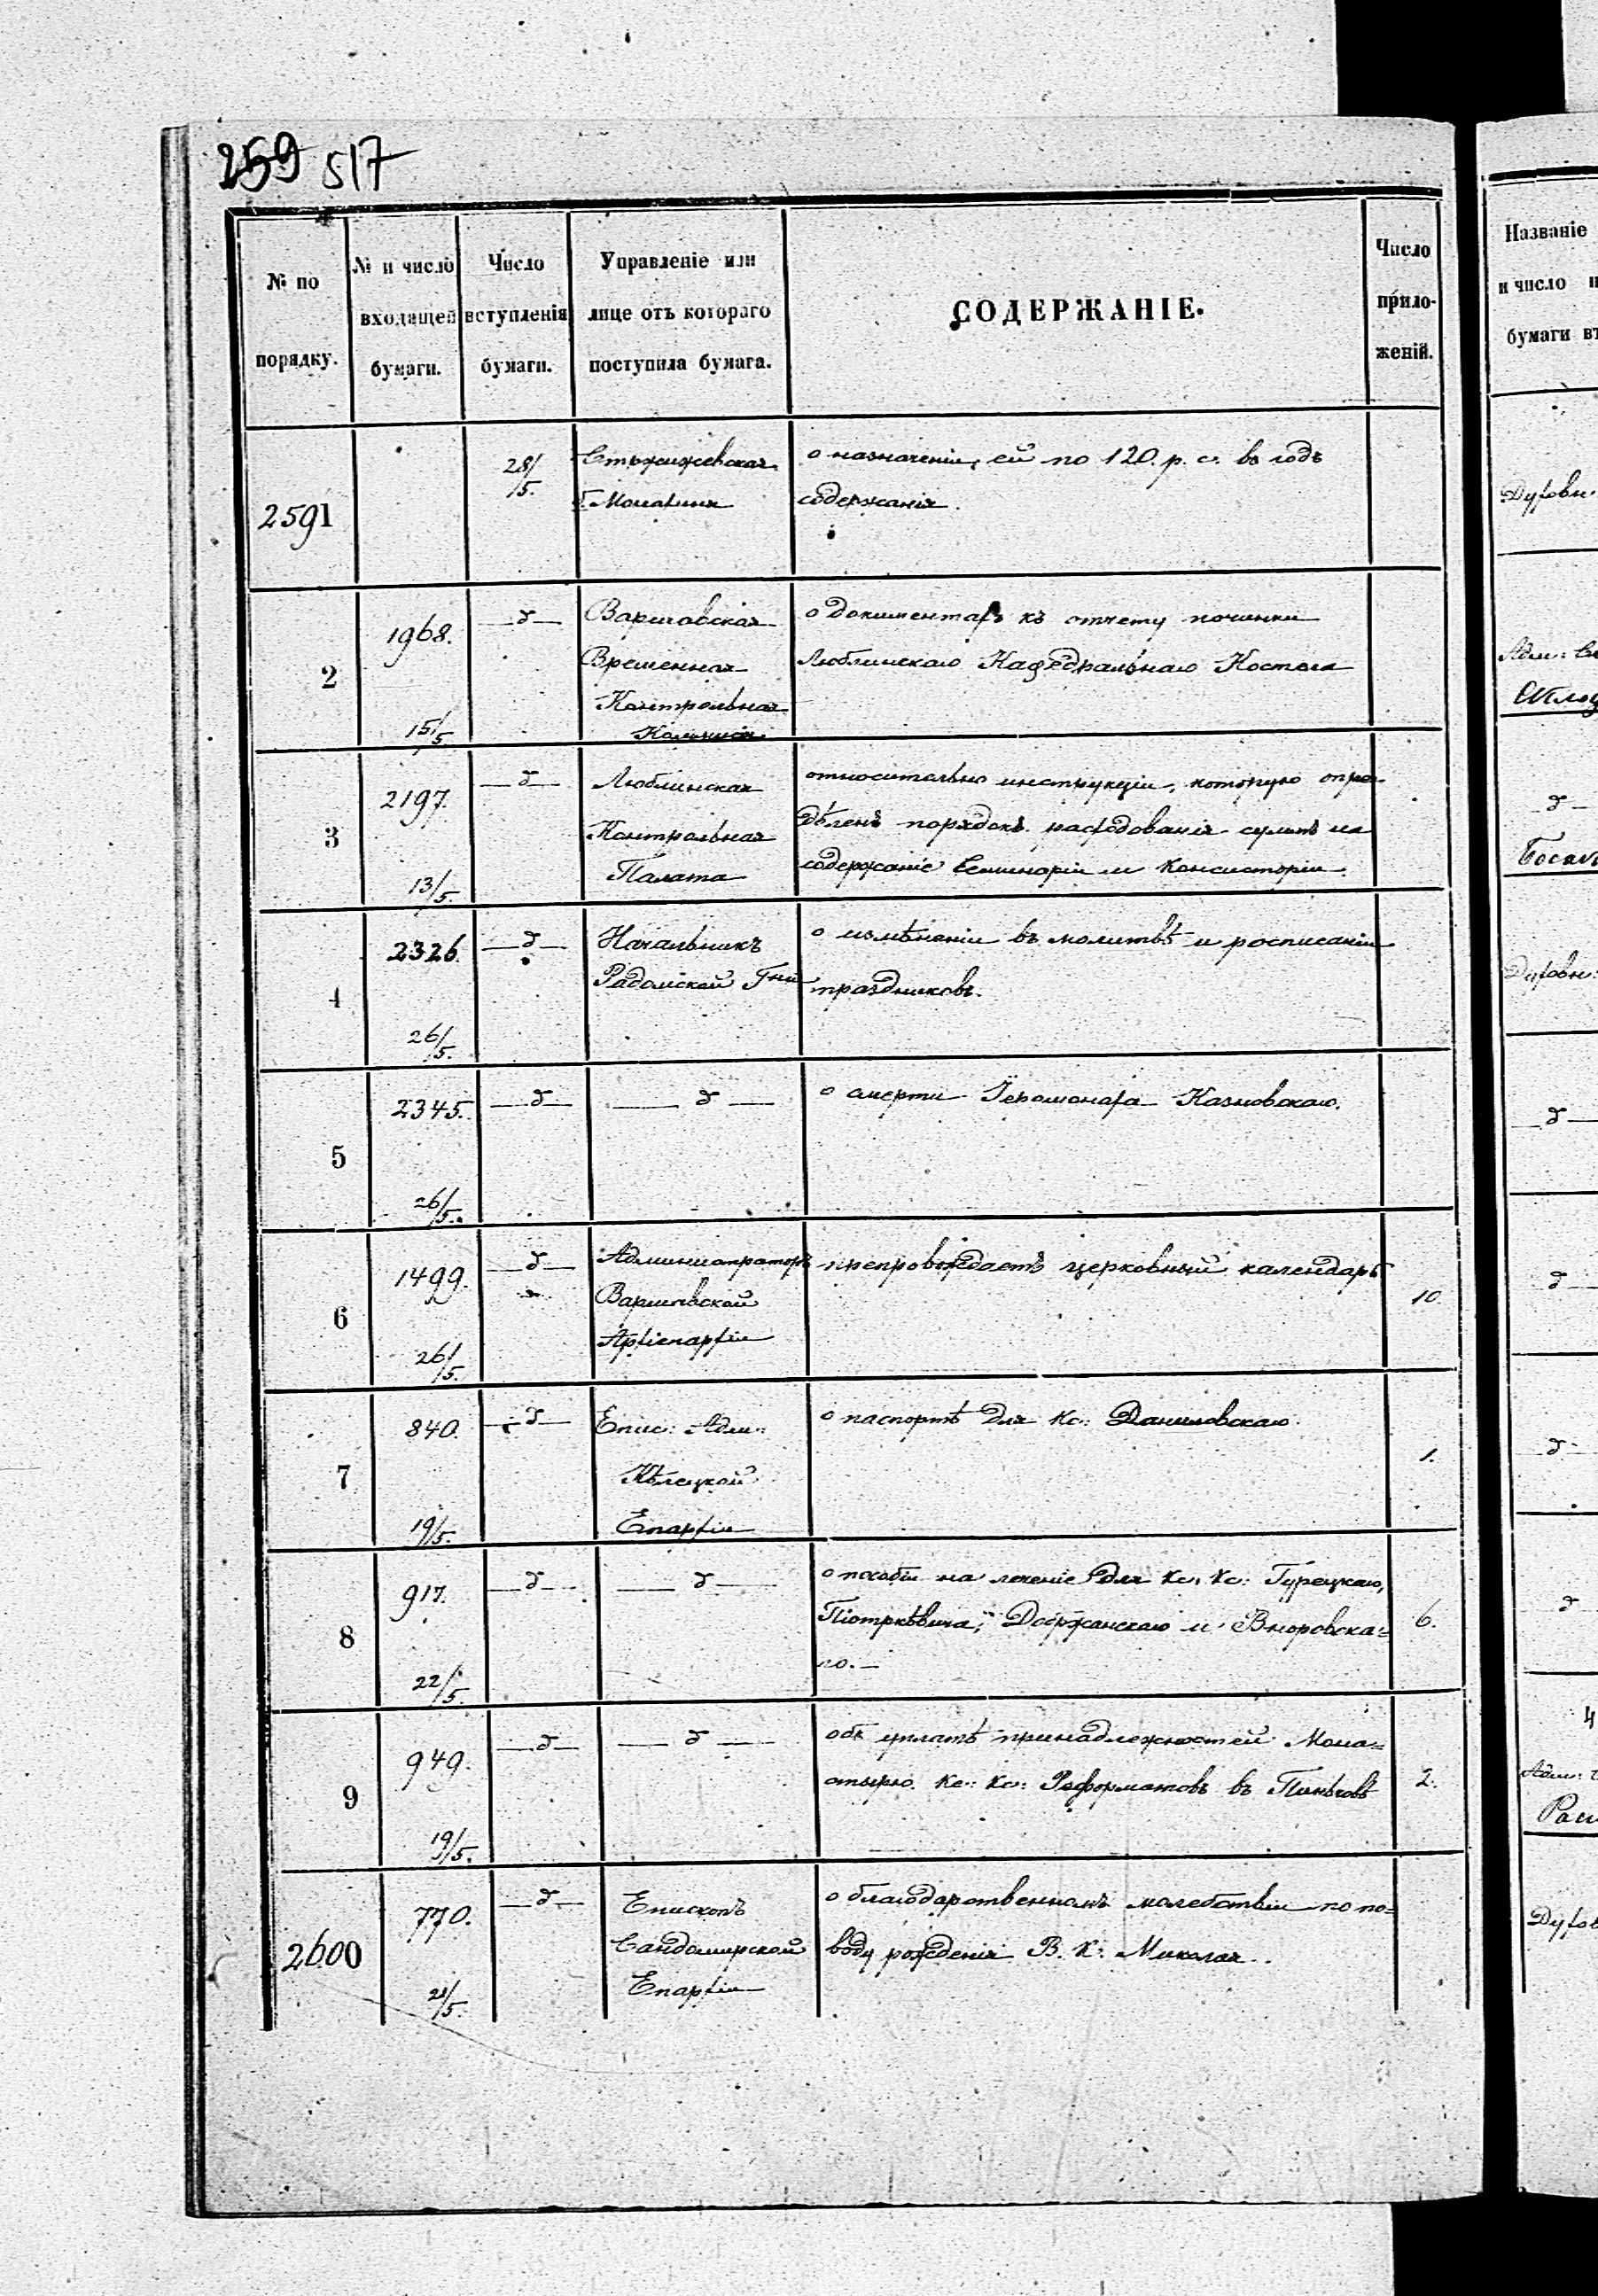 259 517
№ по порядку.
№ и число входящей бумаги.
Число вступленія бумаги.
Управленіе или лице отъ котораго поступила бумага.
СОДЕРЖАНІЕ.
Число приложеній.
2591
28/5.
Стржижевская
б. Монахиня
о назначеніи ей по 120. р. с. въ годъ
содержанія.
2
1968.
15/5
д
Варшавская
Временная
Контрольная
Комиссія
о документахъ къ отчету починки
Люблинскаго Кафедральнаго Костела
3
2197.
13/5.
д
Люблинская
Контрольная
Палата
относительно инструкціи, которую опре-
дѣленъ порядокъ расходованія суммъ на
содержаніе Семинаріи и Консисторіи.
4
2326.
26/5.
д
Начальникъ
Радомской Гни
о измѣненіи въ молитвѣ и росписаніи
праздниковъ.
5
2345.
26/5.
д
д
о смерти Іеромонаха Казновскаго.
6
1499.
26/5.
д
Администраторъ
Варшавской
Архіепархіи
препровождаетъ церковный календарь
10.
7
840.
19/5.
д
Епис: Адм:
Кѣлецкой
Епархіи
о паспортѣ для Кс: Даниловскаго.
1.
8
917.
22/5.
д
д
о пособіи на леченіе для Кс. Кс: Турецкаго,
Піотрковича, Добржанскаго и Вноровска=
го.—
6.
9
949.
19/5.
д
д
объ уплатѣ принадлежностей Мона=
стырю Кс: Кс: Реформатовъ въ Пиньчовѣ
2.
2600
770.
21/5.
д
Епископъ
Сандомирской
Епархіи
о благодарственномъ молебствіи по по=
воду рожденія В. К. Николая.
Названіе
и число
бумаги
Духовн.
д
Духовн:
д
д
д
д
4
Адм: